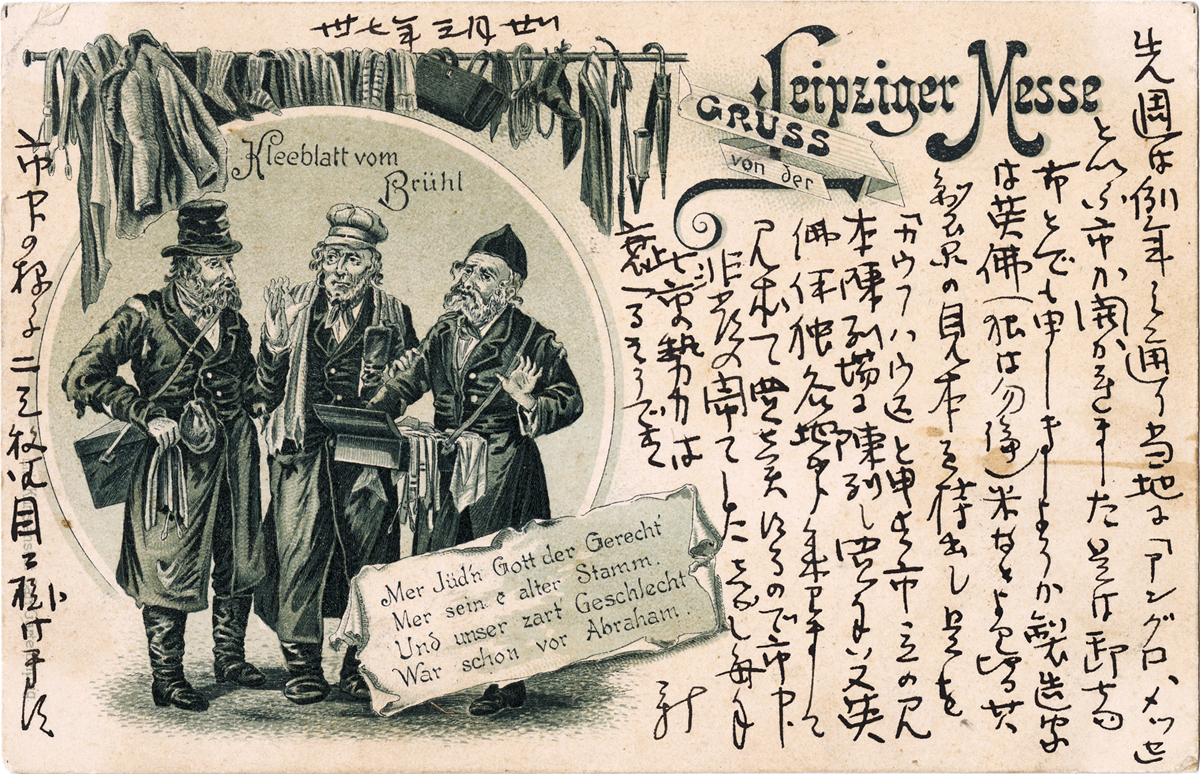 卅七年三月廿
Leipziger Messe
GRUSS
von der
Kleeblatt vom
Brühl
Mer Jüd'n Gott der Gerecht'
Mer sein e alter Stamm.
Und unser zart Geschlecht
War schon vor Abraham.
先週は例年之通り当地に「アングロ、メッセ
といふ市か開かれました是は卸売
市とでも申しましようか製造家
は英佛(独は勿論)米なとより其
製品の見本を持出し是を
「カウフハウス」と申す市立の見
本陳列場に陳列し買手は又英
佛伊独各地より来まして
見本にて売買するので市中
非常の閙てした 毎年
此市の勢力は
衰へるそうです
市中の様子二三枚御目に掛け申候